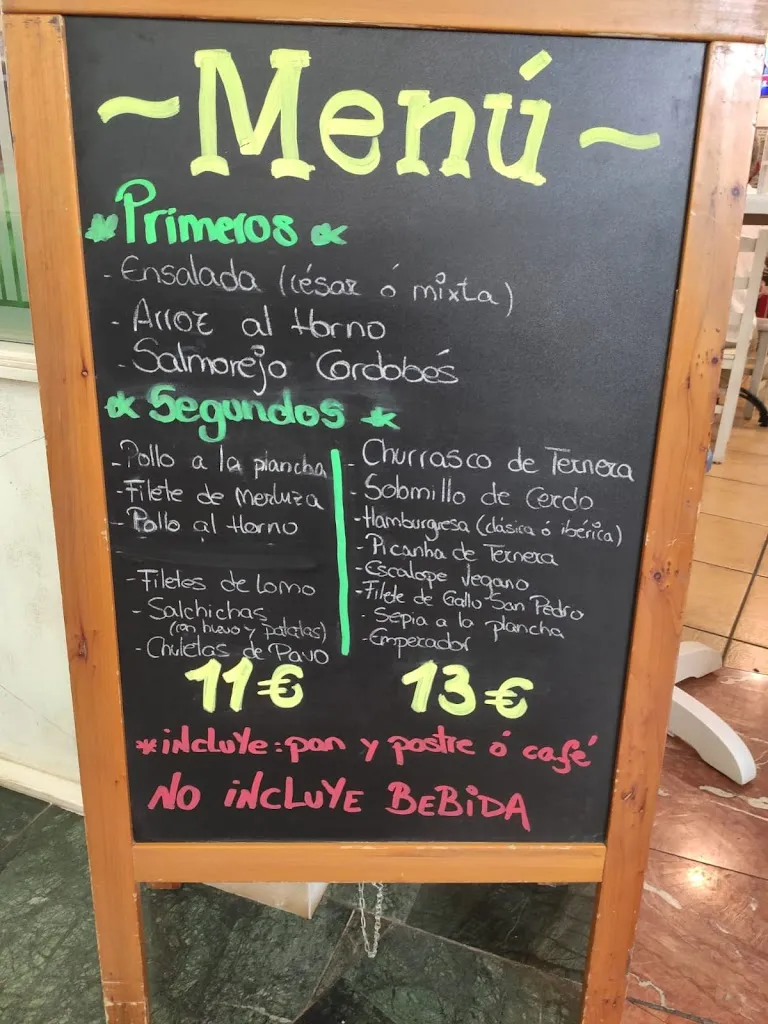 ~Menú~
Primeros
- Ensalada (césar ó mixta)
- Arroz al Horno
- Salmorejo Cordobés
Segundos
- Pollo a la plancha
- Filete de Merluza
- Pollo al Horno
- Filetes de Lomo
- Salchichas
(con huevo y patatas)
- Chuletas de Pavo
11€
- Churrasco de Ternera
- Solomillo de Cerdo
- Hamburgesa (clásica ó ibérica)
- Picanha de Ternera
- Escalope Vegano
- Filete de Gallo San Pedro
- Sepia a la plancha
- Emperador
13€
*incluye: pan y postre ó café
NO INCLUYE BEBIDA